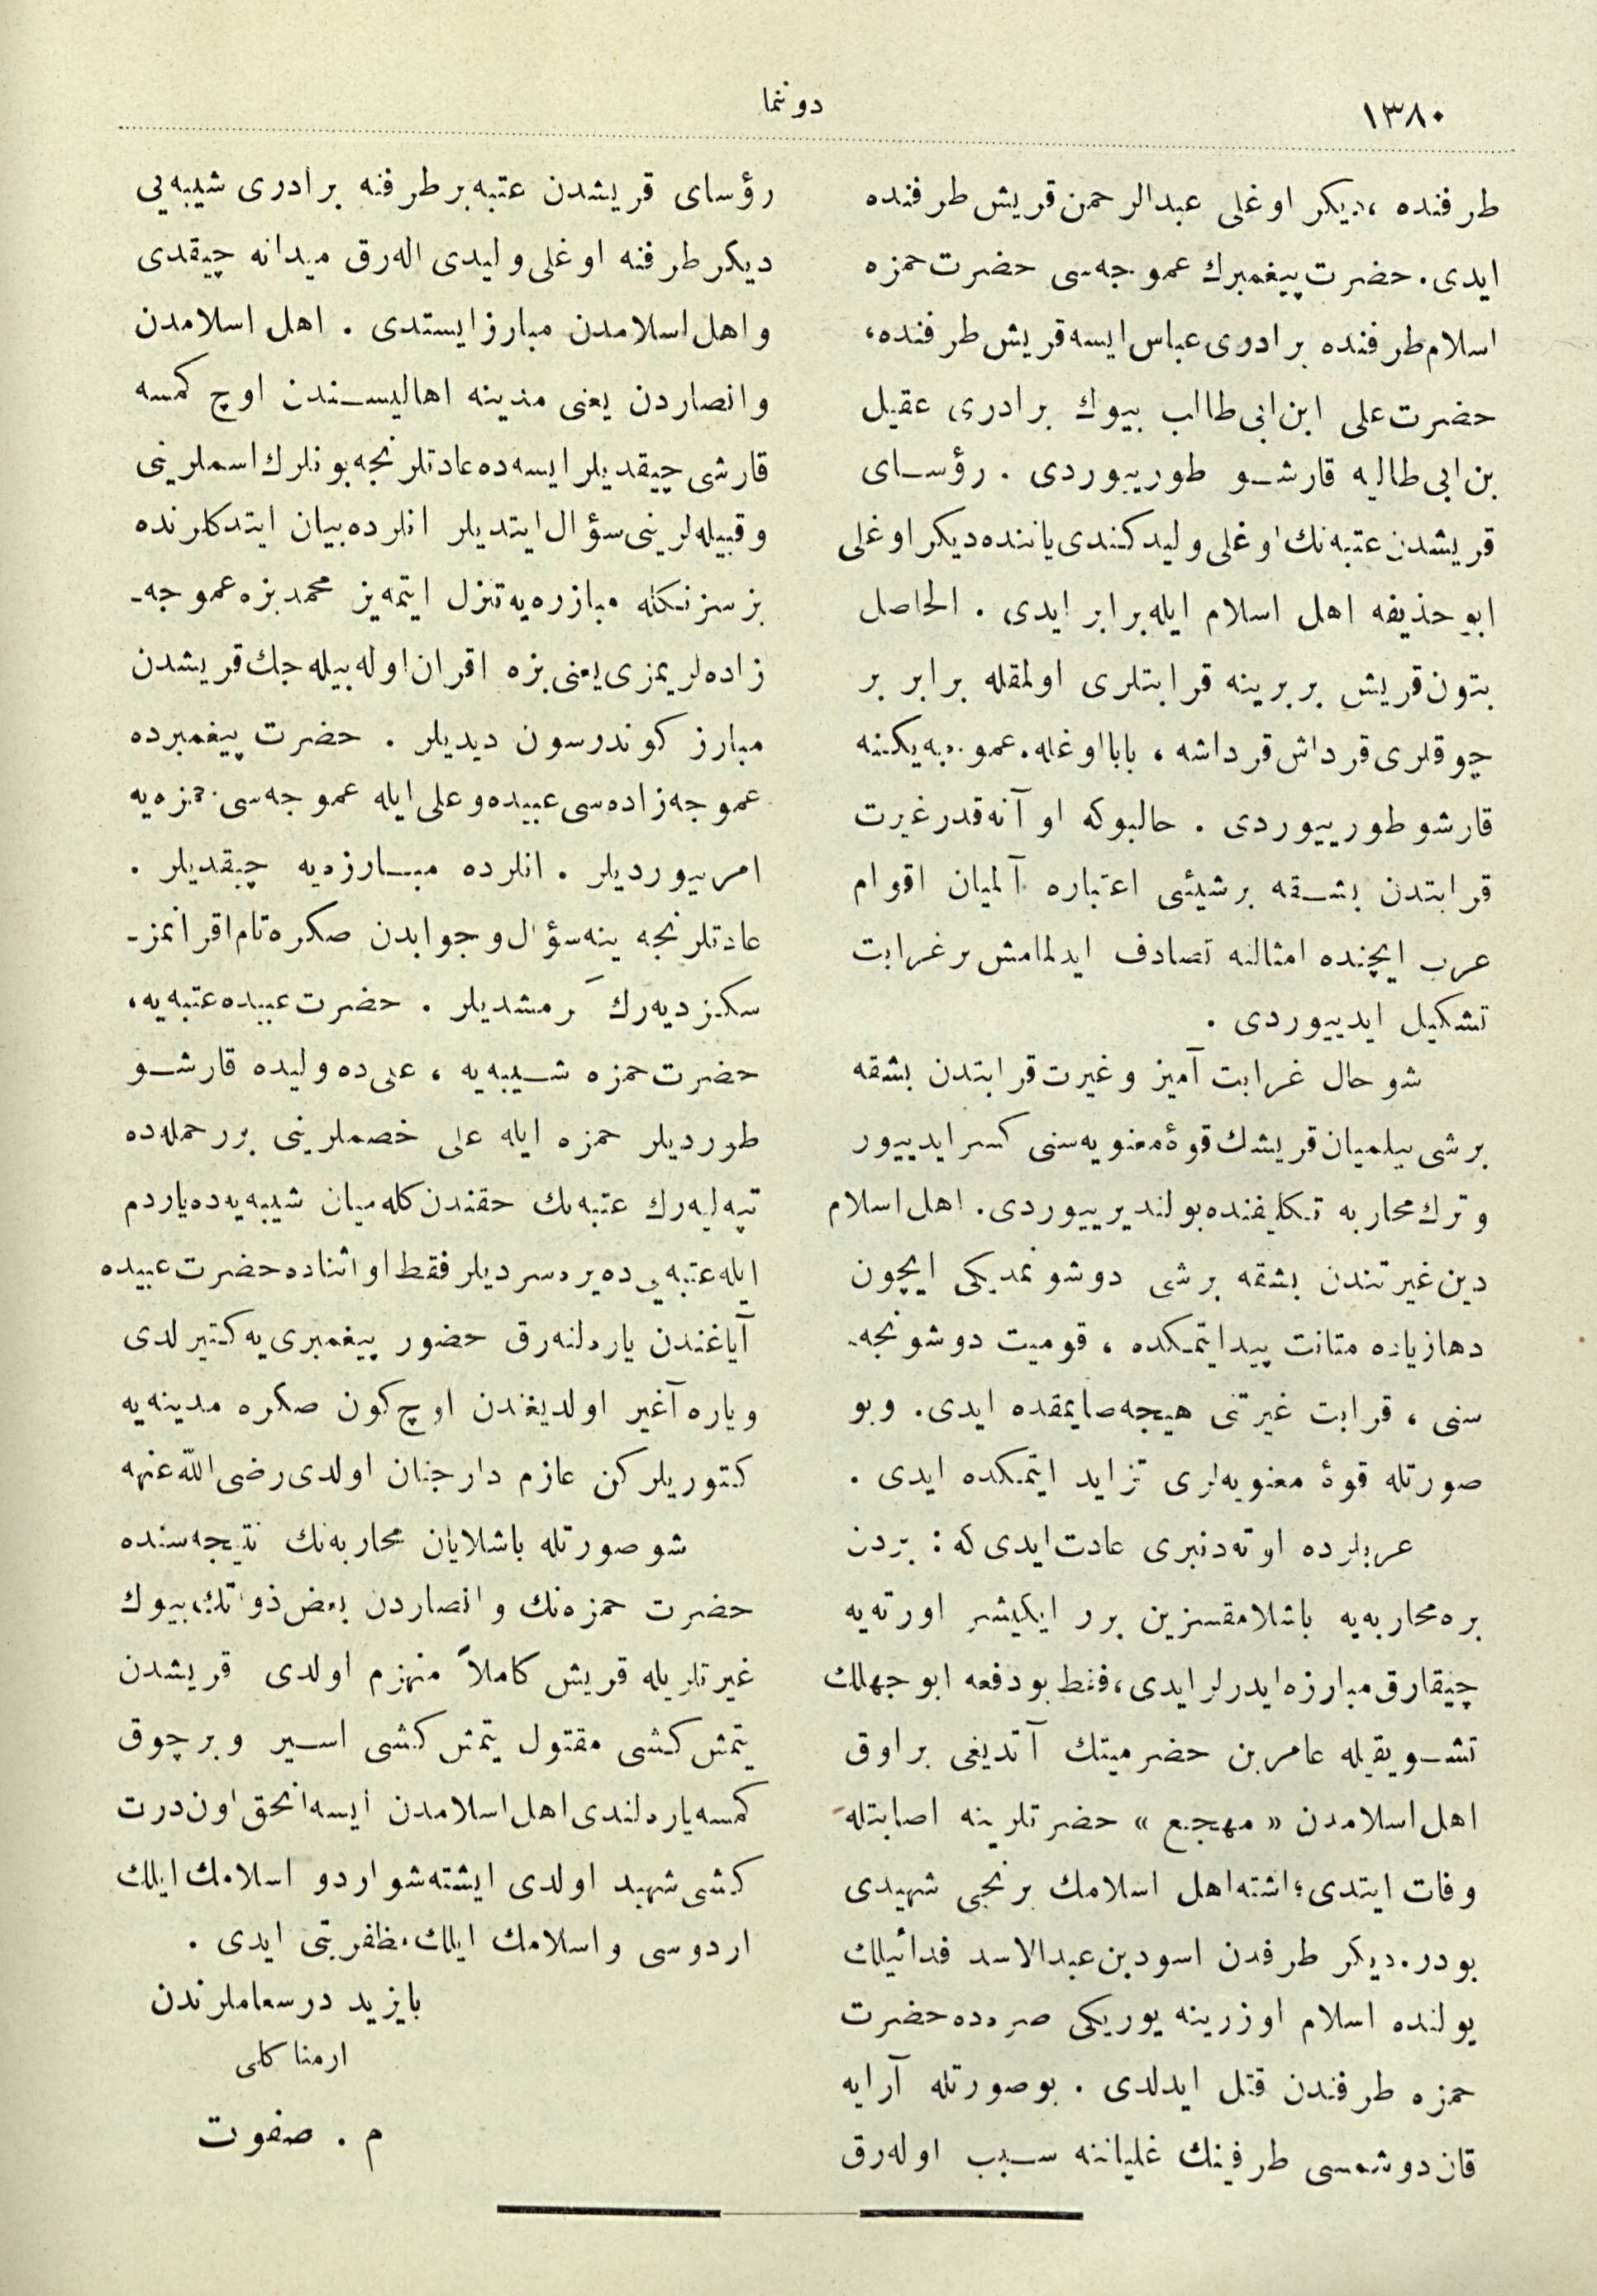 ١٣٨٠
دوننما
طرفنده ، دیکر اوغلی عبدالرحمن قریش طرفنده
ایدی . حضرت پیغمبرك عموجه‌سی حضرت حمزه
اسلام طرفنده برادری عباس ایسه قریش طرفنده ،
حضرت علی ابن ابی طالب بیوك برادری عقیل
بن ابی طالبه قارشو طورییوردی . رؤسای
قریشدن عتبه‌نك اوغلی ولید کندی یاننده دیکر اوغلی
ابو حذیفه اهل اسلام ایله برابر ایدی . الحاصل
بتون قریش بربرینه قرابتلری اولمقله برابر بر
چوقلری قرداش قرداشه ، بابا اوغله . عموجه یکننه
قارشو طورییوردی . حالبوکه او آنه قدر غیرت
قرابتدن بشقه برشیئی اعتباره آلمیان اقوام
عرب ایچنده امثالنه تصادف ایدلمامش بر غرابت
تشکیل ایدییوردی .
شو حال غرابت آمیز و غیرت قرابتدن بشقه
برشی بیلمیان قریشك قوۀ معنویه‌سنی کسر ایدییور
و ترك محاربه تکلیفنده بولندیرییوردی . اهل اسلام
دین غیرتندن بشقه برشی دوشونمدیکی ایچون
دها زیاده متانت پیدا ایتمکده ، قومیت دوشونجه‌ـ
سنی ، قرابت غیرتنی هیچه صایمقده ایدی . و بو
صورتله قوۀ معنویه‌لری تزاید ایتمکده ایدی .
عربلرده اوته‌دنبری عادت ایدی که : بردن
بره محاربه‌یه باشلامقسزین برر ایکیشر اورته‌یه
چیقارق مبارزه ایدرلر ایدی ، فقط بو دفعه ابو جهلك
تشویقیله عامر بن حضرمینك آتدیغی بر اوق
اهل اسلامدن « مهجع » حضرتلرینه اصابتله
وفات ایتدی ؛ اشته اهل اسلامك برنجی شهیدی
بودر . دیکر طرفدن اسود بن عبدالاسد فدائیلك
یولنده اسلام اوزرینه یوریکی صره‌ده حضرت
حمزه طرفندن قتل ایدلدی . بو صورتله آرایه
قان دوشمسی طرفینك غلیاننه سبب اوله‌رق
رؤسای قریشدن عتبه بر طرفنه برادری شیبه‌یی
دیکر طرفنه اوغلی ولیدی اله‌رق میدانه چیقدی
و اهل اسلامدن مبارز ایستدی . اهل اسلامدن
و انصاردن یعنی مدینه اهالیسندن اوچ کمسه
قارشی چیقدیلر ایسه‌ده عادتلرنجه بونلرك اسملرینی
و قبیله‌لرینی سؤال ایتدیلر انلرده بیان ایتدکلرنده
بز سزنکله مبارزه‌یه تنزل ایتمه‌یز محمد بزه عموجه‌ـ
زاده‌لریمزی یعنی بزه اقران اوله بیله‌جك قریشدن
مبارز کوندرسون دیدیلر . حضرت پیغمبرده
عموجه زاده‌سی عبیده و علی ایله عموجه‌سی حمزه‌یه
امر بیوردیلر . انلرده مبارزه‌یه چیقدیلر .
عادتلرنجه ینه سؤال و جوابدن صکره تام اقرانمزـ
سکز دیه‌رك کرمشدیلر . حضرت عبیده عتبه‌یه ،
حضرت حمزه شیبه‌یه ، علی‌ده ولیده قارشو
طوردیلر حمزه ایله علی خصملرینی برر حمله‌ده
تپه‌لیه‌رك عتبه‌نك حقندن کله‌میان شیبه‌یه‌ده یاردم
ایله عتبه‌یی ده یره سردیلر فقط او اثناده حضرت عبیده
آیاغندن یاره‌لنه‌رق حضور پیغمبری‌یه کتیرلدی
و یاره آغیر اولدیغندن اوچ کون صکره مدینه‌یه
کتوریلرکن عازم دار جنان اولدی رضی الله عنه
شو صورتله باشلایان محاربه‌نك نتیجه‌سنده
حضرت حمزه‌نك و انصاردن بعض ذواتك بیوك
غیرتلریله قریش کاملاً منهزم اولدی قریشدن
یتمش کشی مقتول یتمش کشی اسیر و بر چوق
کمسه یاره‌لندی اهل اسلامدن ایسه انجق اون درت
کشی شهید اولدی ایشته شو اردو اسلامك ایلك
اردوسی و اسلامك ایلك مظفریتی ایدی .
بایزید درسعاملرندن
ارمناکلی
م . صفوت